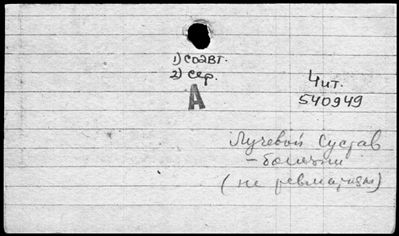 1) соавт.
2) сер.
А
Чит.
540949
Лучевой сустав
- болезни
(не ревматизм)